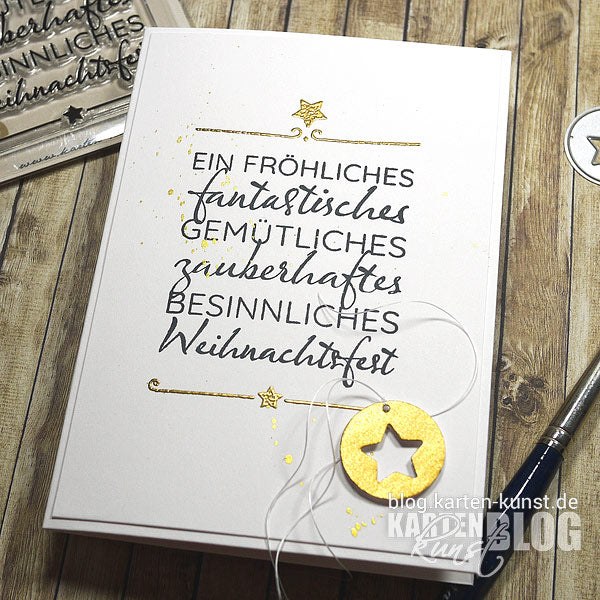 fantastisches
BESINNLICHES
Weihnachtsfest
EIN FRÖHLICHES
fantastisches
GEMÜTLICHES
zauberhaftes
BESINNLICHES
Weihnachtsfest
blog.karten-kunst.de
KARTEN
kunst
BLOG